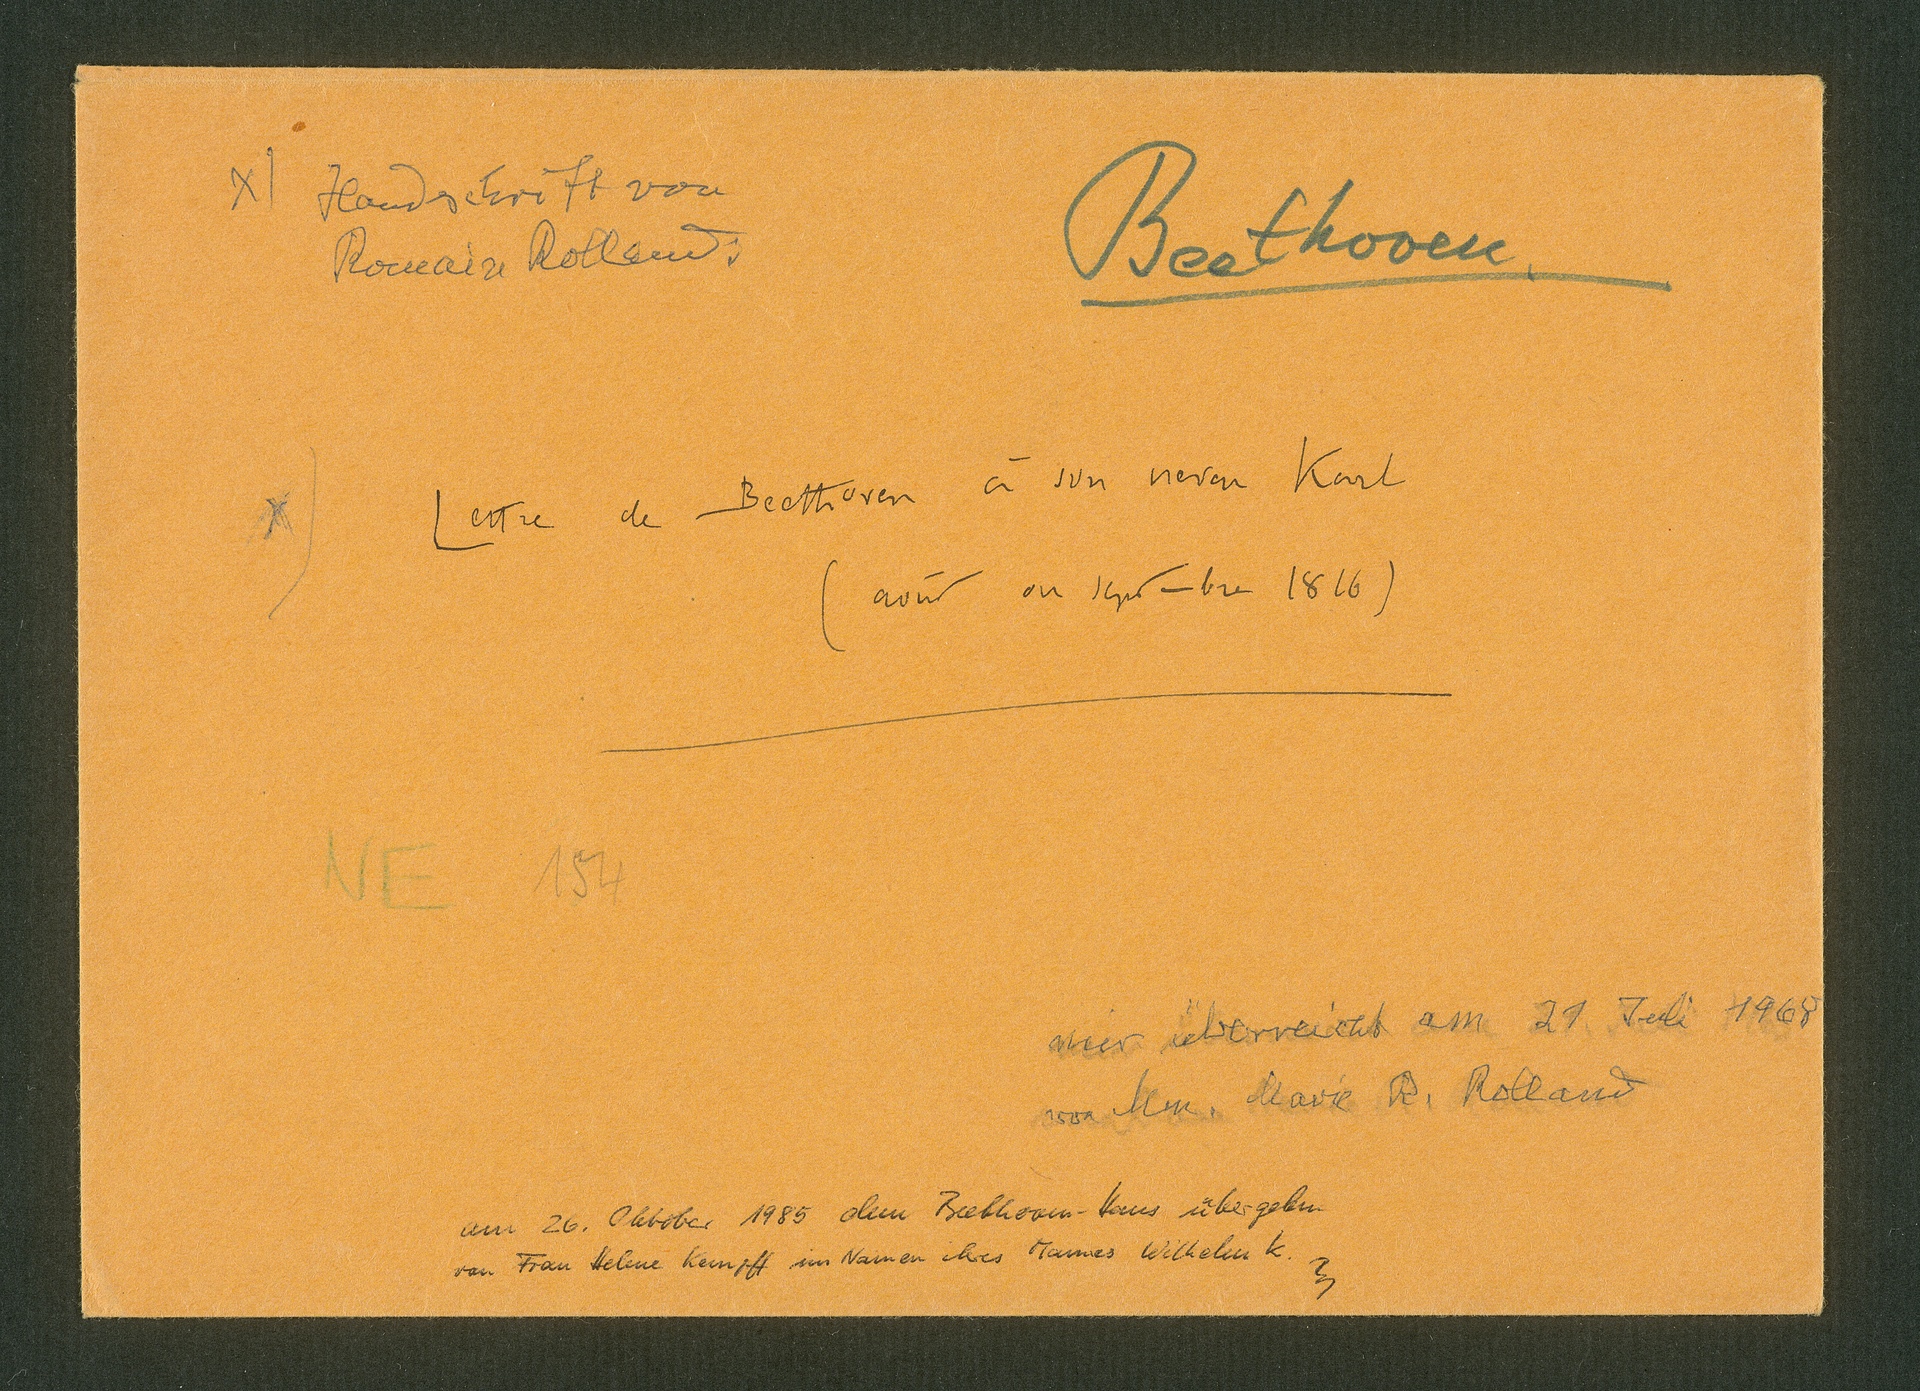 x) Handschrift von
Romain Rollands
Beethoven.
x) Lettre de Beethoven à son neveu Karl
(août ou septembre 1816)
NE 154
mir überreicht am 21 Juli 1968
von Mm. Marie R. Rolland
am 26. Oktober 1985 dem Beethoven-Haus übergeben
von Frau Helene Kempff im Namen ihres Mannes Wilhelm K.